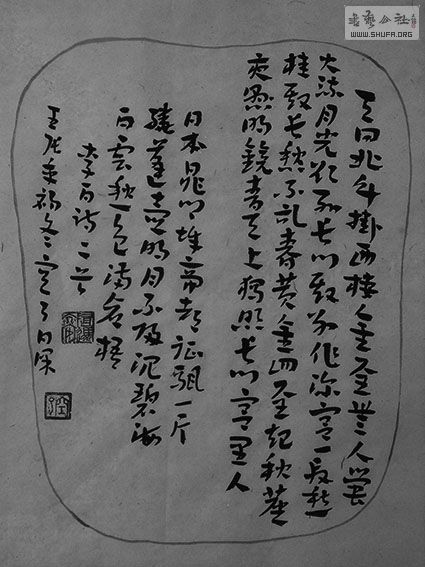 書藝公社
WWW.SHUFA.ORG
天回北斗掛西樓金屋無人螢
火流月光欲到長門殿別作深宮一段愁
桂殿長愁不記春黃金四屋起秋塵
夜懸明鏡青天上獨照長門宮里人
日本晁卿辭帝都征帆一片
繞蓬壺明月不歸沉碧海
白雲愁色滿蒼梧
李白詩二首
壬辰